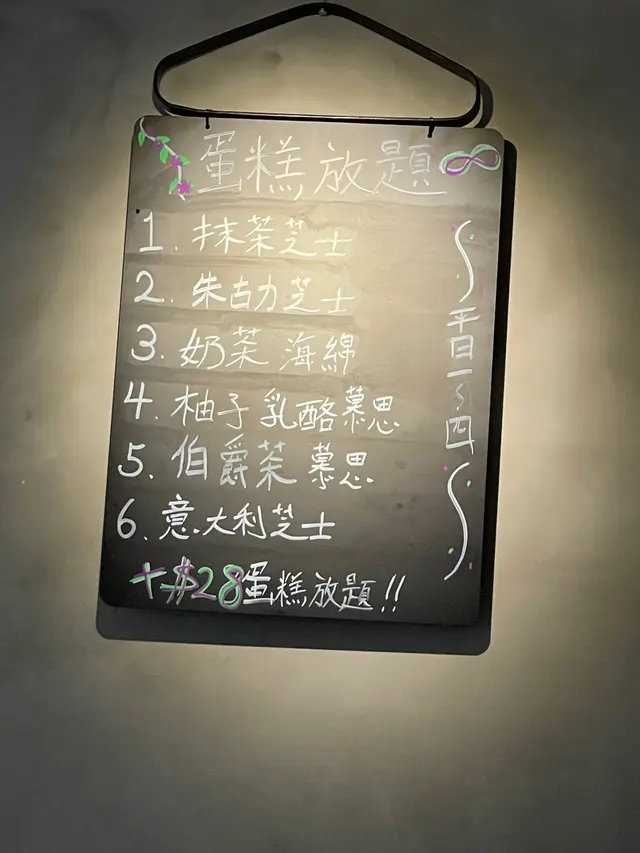 蛋糕放題∞
1. 抹茶芝士
2. 朱古力芝士
3. 奶茶 海綿
4. 柚子 乳酪慕思
5. 伯爵茶 慕思
6. 意大利芝士
+$28蛋糕放題!!
平日一~四